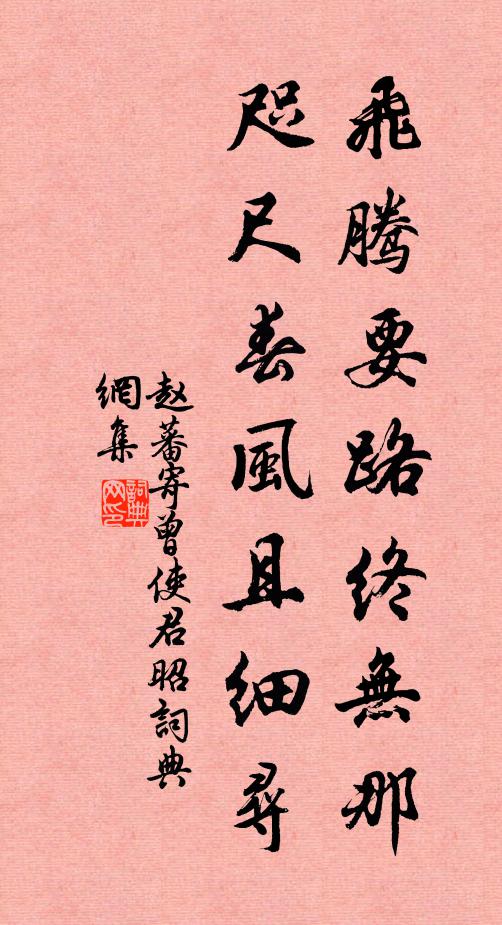 飛騰要路終無那
咫尺春風且細尋
赵蕃寄曾使君昭詞典
網集
詞典
网印